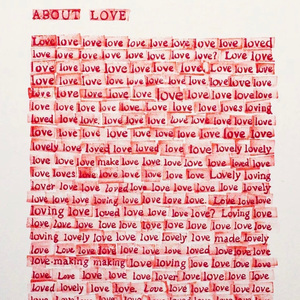 ABOUT LOVE
Love love love love love love love love love loved
love love love love love love love? Love love
love love love love love love. Love love love
love love love love love love love love love love
love love love love love love love love love love
love love love love. Love love love loves loving
loved love love love love love love love love love
love love love love love love love love love love
lovely love loved love love love love lovely
love love love make love love love love loved love
love loves love love love love love. Lovely loving
lover love loved love love love love love lovely
love love love loving love love love. Love love love
loving love. loved love love love? Loving love
love love love love love love love loving love love
loving lovely love love love lovely made lovely
love Love love love love love loved love love love
love-making making loving loving love loving
love. Love love love. love lover love love love
loved lovely love love. love love love love love